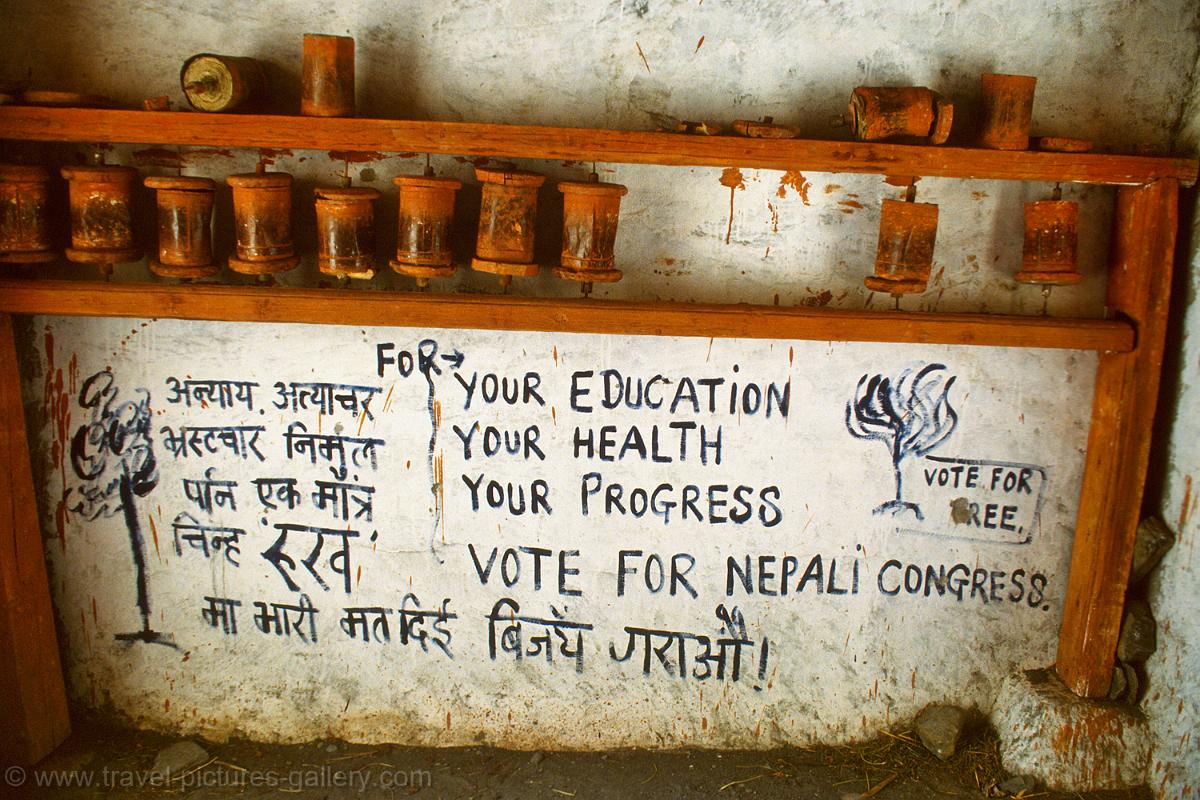 अन्याय. अत्याचर
भ्रस्टचार निमुल
पार्न एक मात्र
चिन्ह रुख
मा भारी मत दिई बिजय गराऔं!
FOR→
YOUR EDUCATION
YOUR HEALTH
YOUR PROGRESS
VOTE FOR NEPALI CONGRESS.
VOTE FOR
REE.
© www.travel-pictures-gallery.com